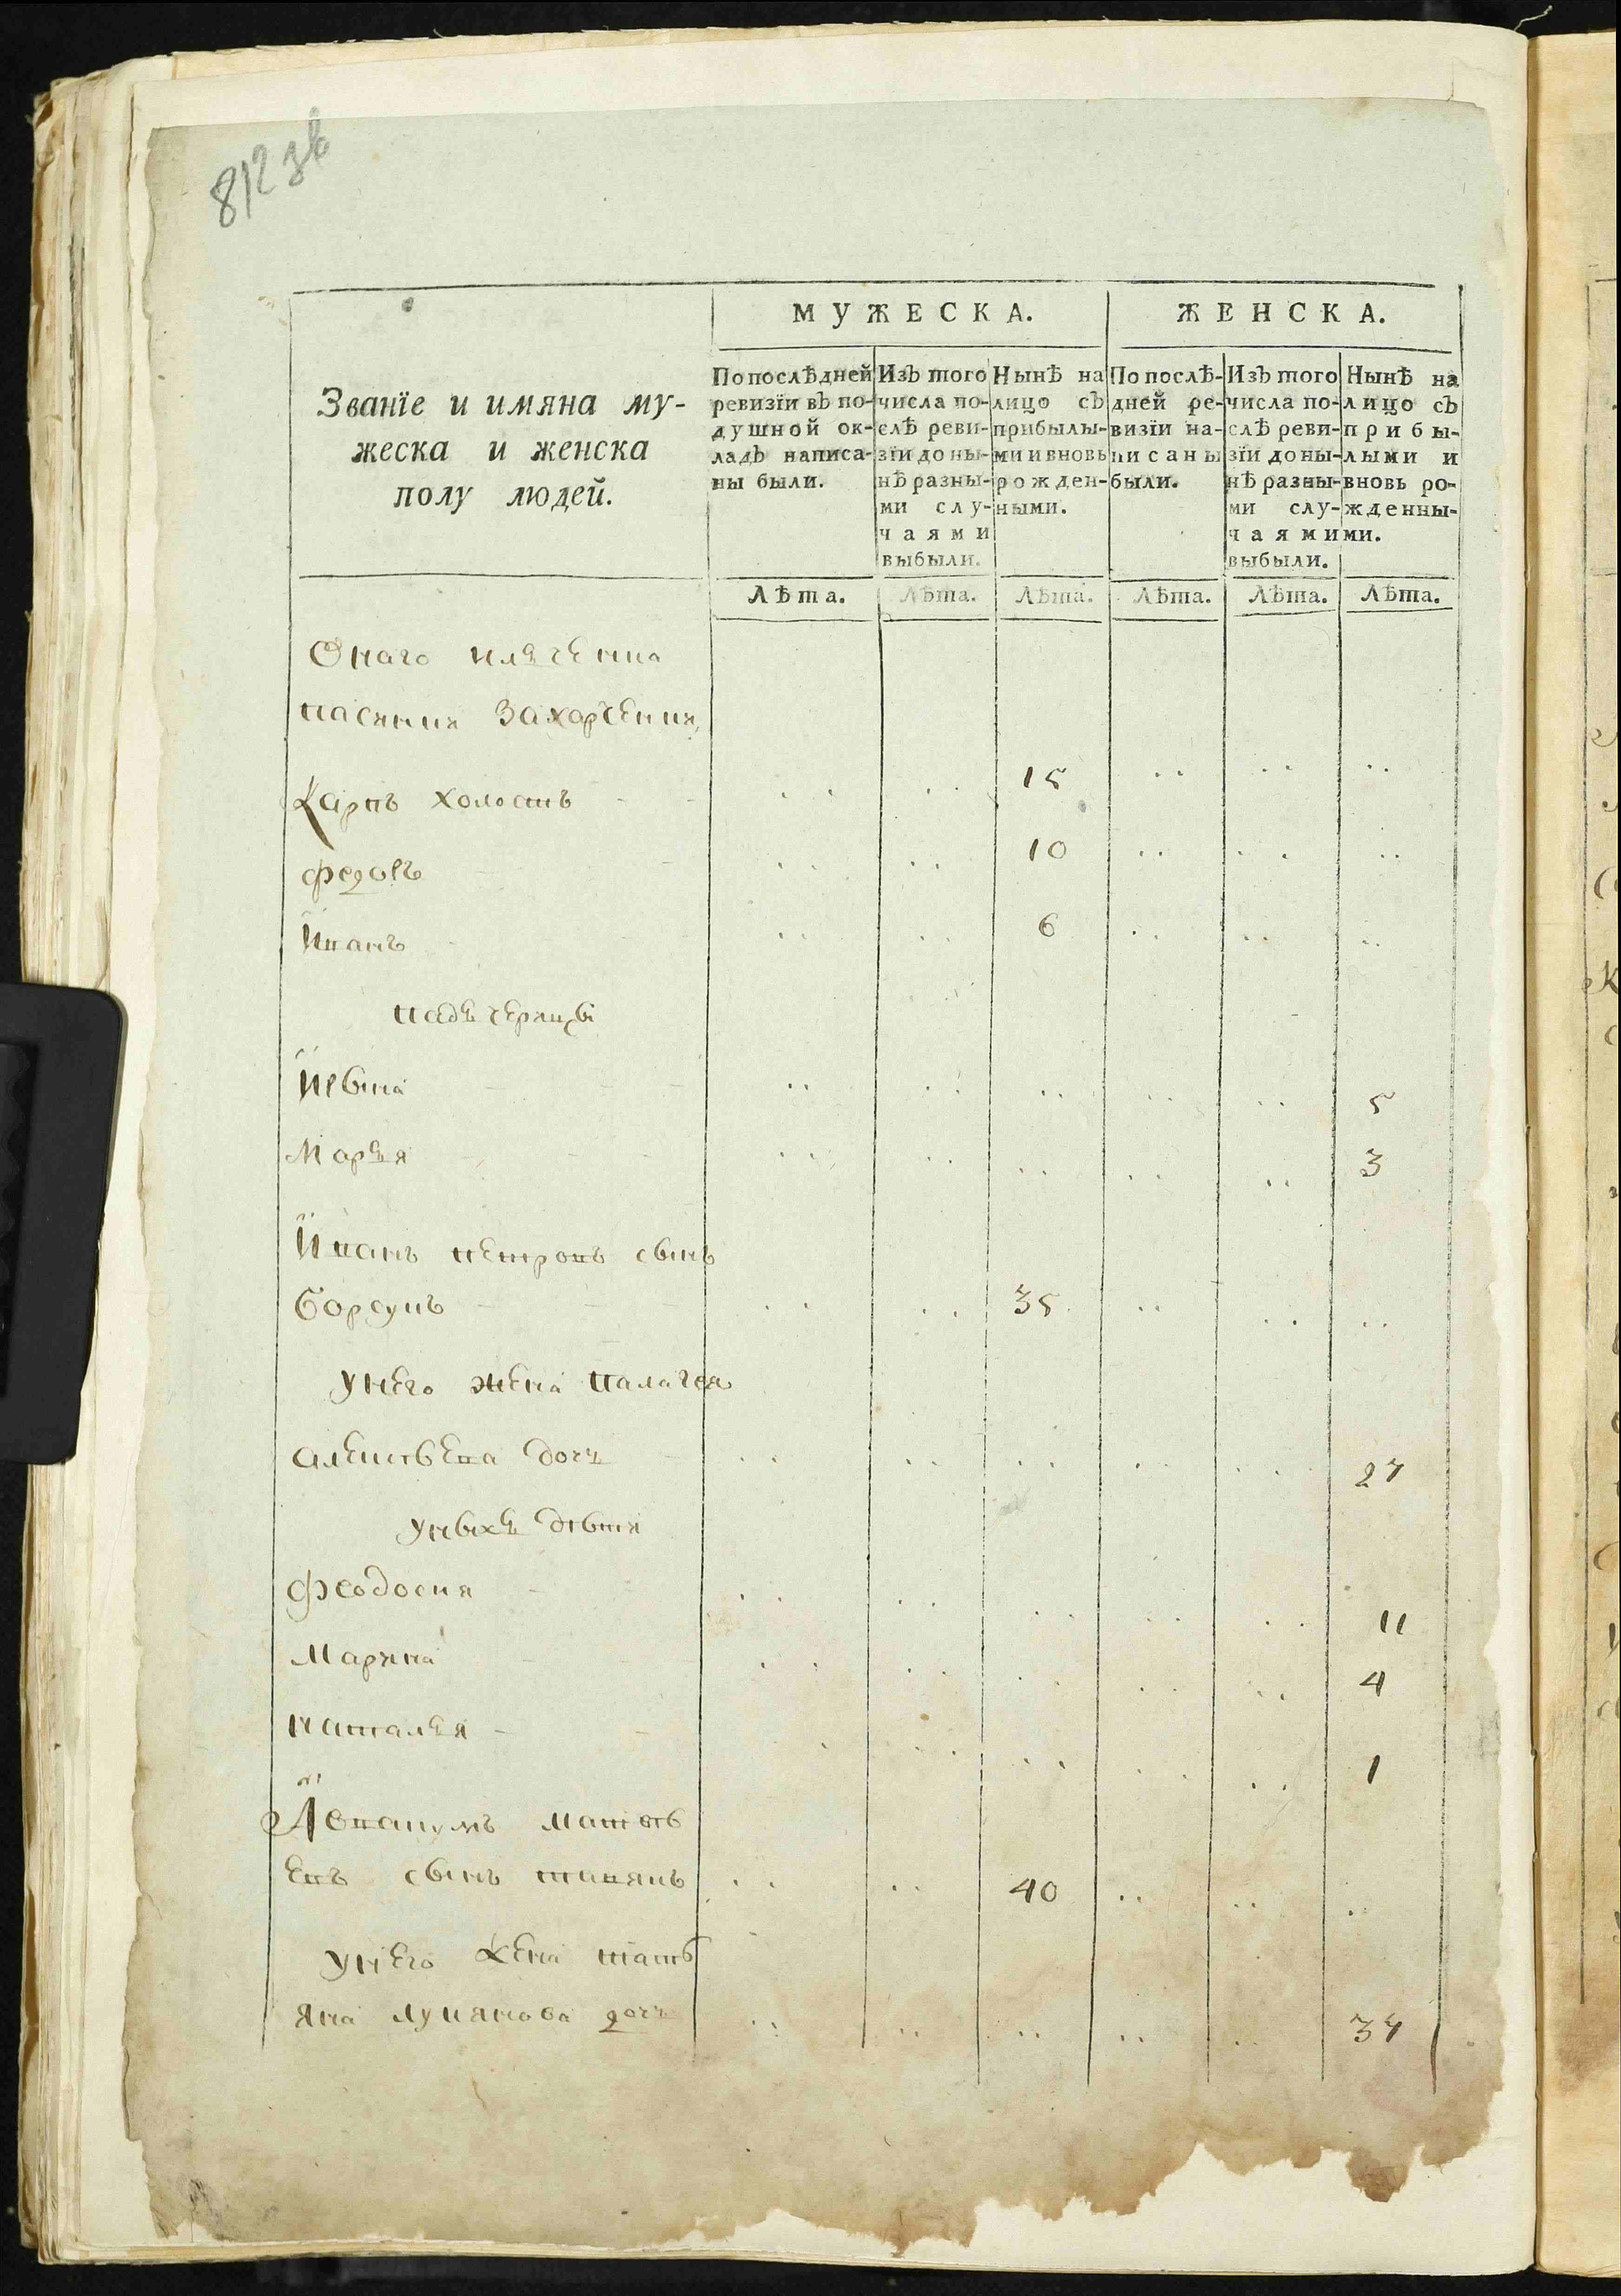 812 зв
МУЖЕСКА.
ЖЕНСКА.
Званїе и имяна му-
жеска и женска
полу людей.
По послѣдней
ревизїи въ по-
душной ок-
ладъ написа-
ны были.
Изъ того
числа по-
слѣ реви-
зїи до ны-
нѣ разны-
ми слу-
чаями
выбыли.
Нынѣ на
лицо съ
прибылы-
ми и вновь
рожден-
ными.
По послѣ-
дней ре-
визїи на-
писаны
были.
Изъ того
числа по-
слѣ реви-
зїи до ны-
нѣ разны-
ми слу-
чаями
выбыли.
Нынѣ на
лицо съ
прибы-
лыми и
вновь ро-
жденны-
ми.
Лѣта. Лѣта. Лѣта. Лѣта. Лѣта. Лѣта.
Онаго
Захарченка
Карпъ холостъ 15
федоръ 10
Иванъ 6
падъчерицы
5
Марья 3
Иванъ петровъ сынъ
Борсукъ 35
унего жена палагея
дочь 27
уныхъ дѣтя
феодосия 11
Марина 4
наталья 1
матвѣ
евъ сынъ 40
унего жена татѣ
яна лукянова дочь 34